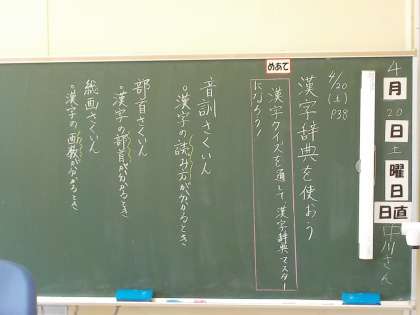 4月20日土曜日
日直 中川さん
4/20(土) P38
漢字辞典を使おう
めあて
漢字クイズを通して、漢字辞典マスター
になろう!
音訓さくいん
。漢字の読み方が分かるとき
部首さくいん
。漢字の部首が分かるとき
総画さくいん
。漢字の画数が分かるとき